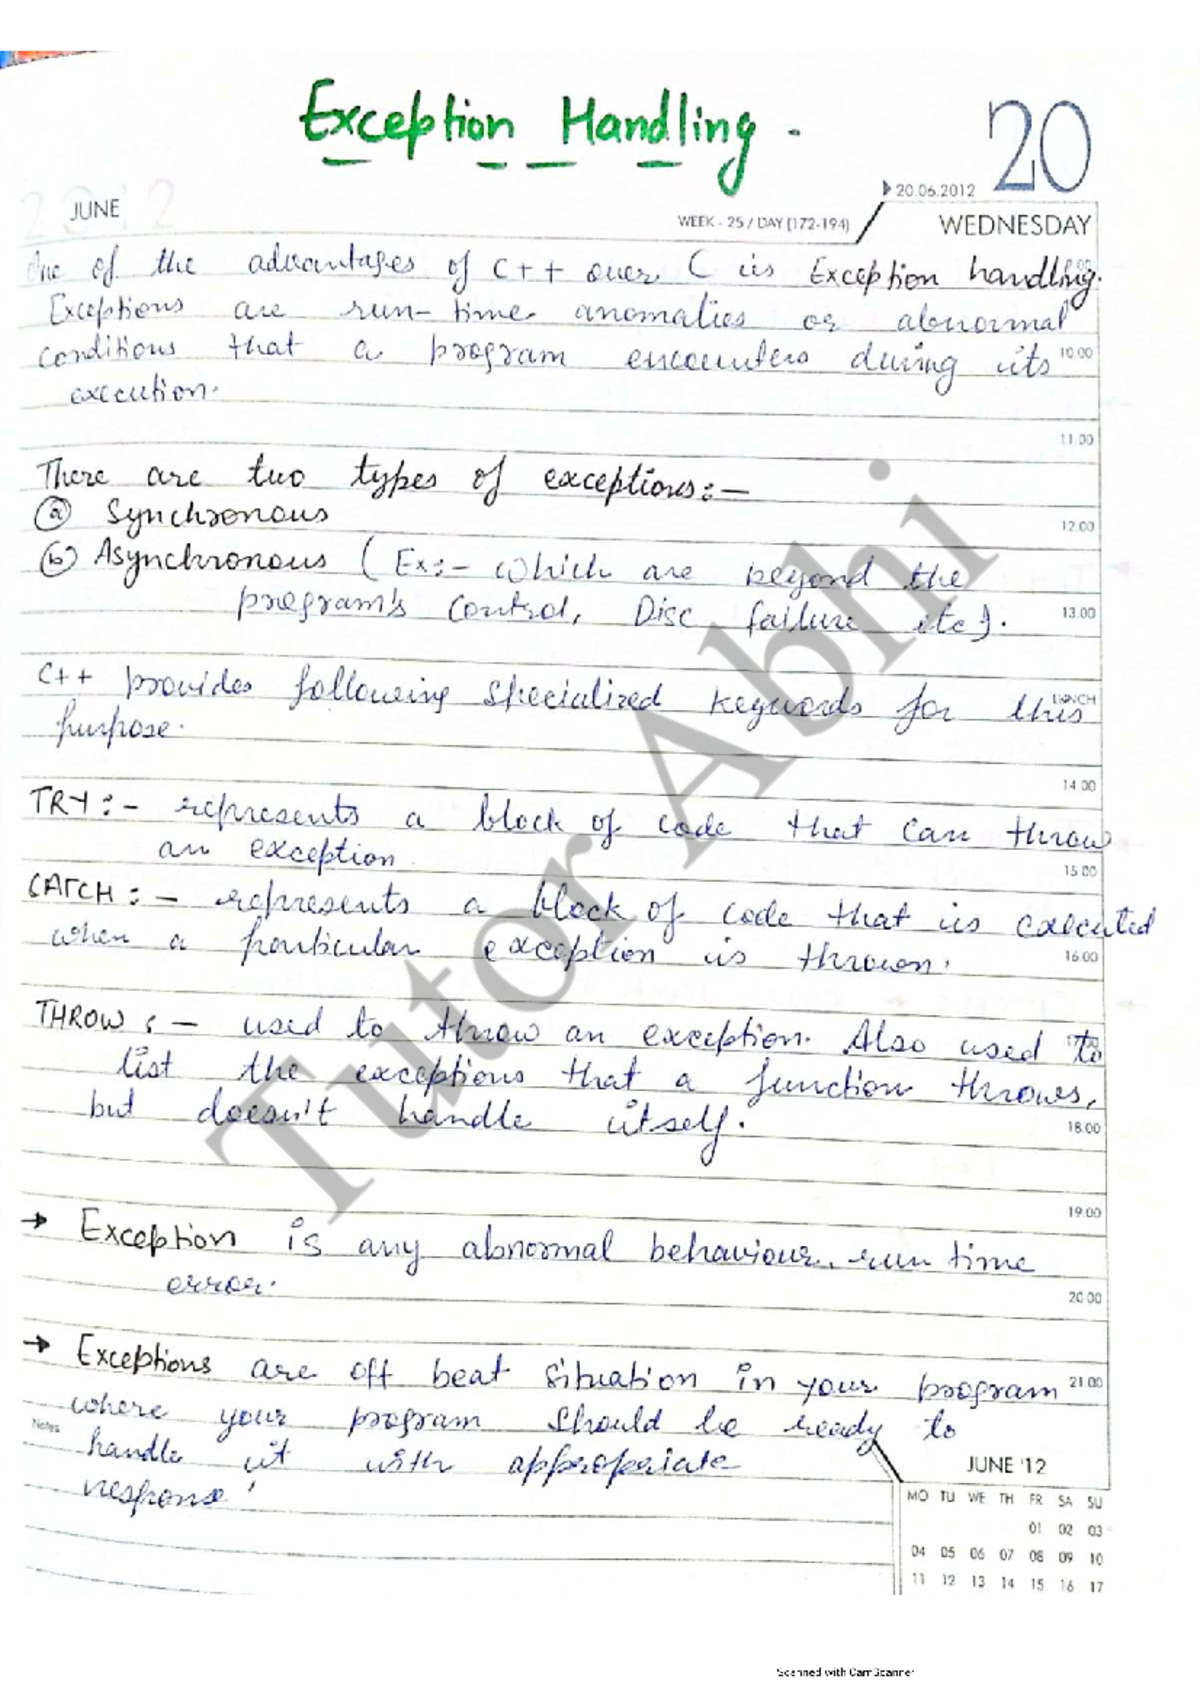 Exception Handling -
20
20.06.2012
JUNE
WEEK - 25 / DAY (172-194)
WEDNESDAY
One of the advantages of C++ over C is Exception handling.
Exceptions are run-time anomalies or abnormal
conditions that a program encounters during its
10.00
execution.
11.00
There are two types of exceptions:-
(a) Synchronous
12.00
(b) Asynchronous (Ex:- which are beyond the
program's control, Disc failure etc).
13.00
C++ provides following specialized keywords for this
LUNCH
purpose.
14.00
TRY:- represents a block of code that can throw
an exception.
15.00
CATCH:- represents a block of code that is executed
when a particular exception is thrown.
16.00
THROW:- used to throw an exception. Also used to
list the exceptions that a function throws,
but doesn't handle itself.
18.00
19.00
→ Exception is any abnormal behaviour, run time
error.
20.00
→ Exceptions are off beat situation in your program
21.00
where your program should be ready to
Notes
handle it with appropriate
response'
JUNE '12
MO TU WE TH FR SA SU
01 02 03
04 05 06 07 08 09 10
11 12 13 14 15 16 17
Tutor Abhi
Scanned with CamScanner